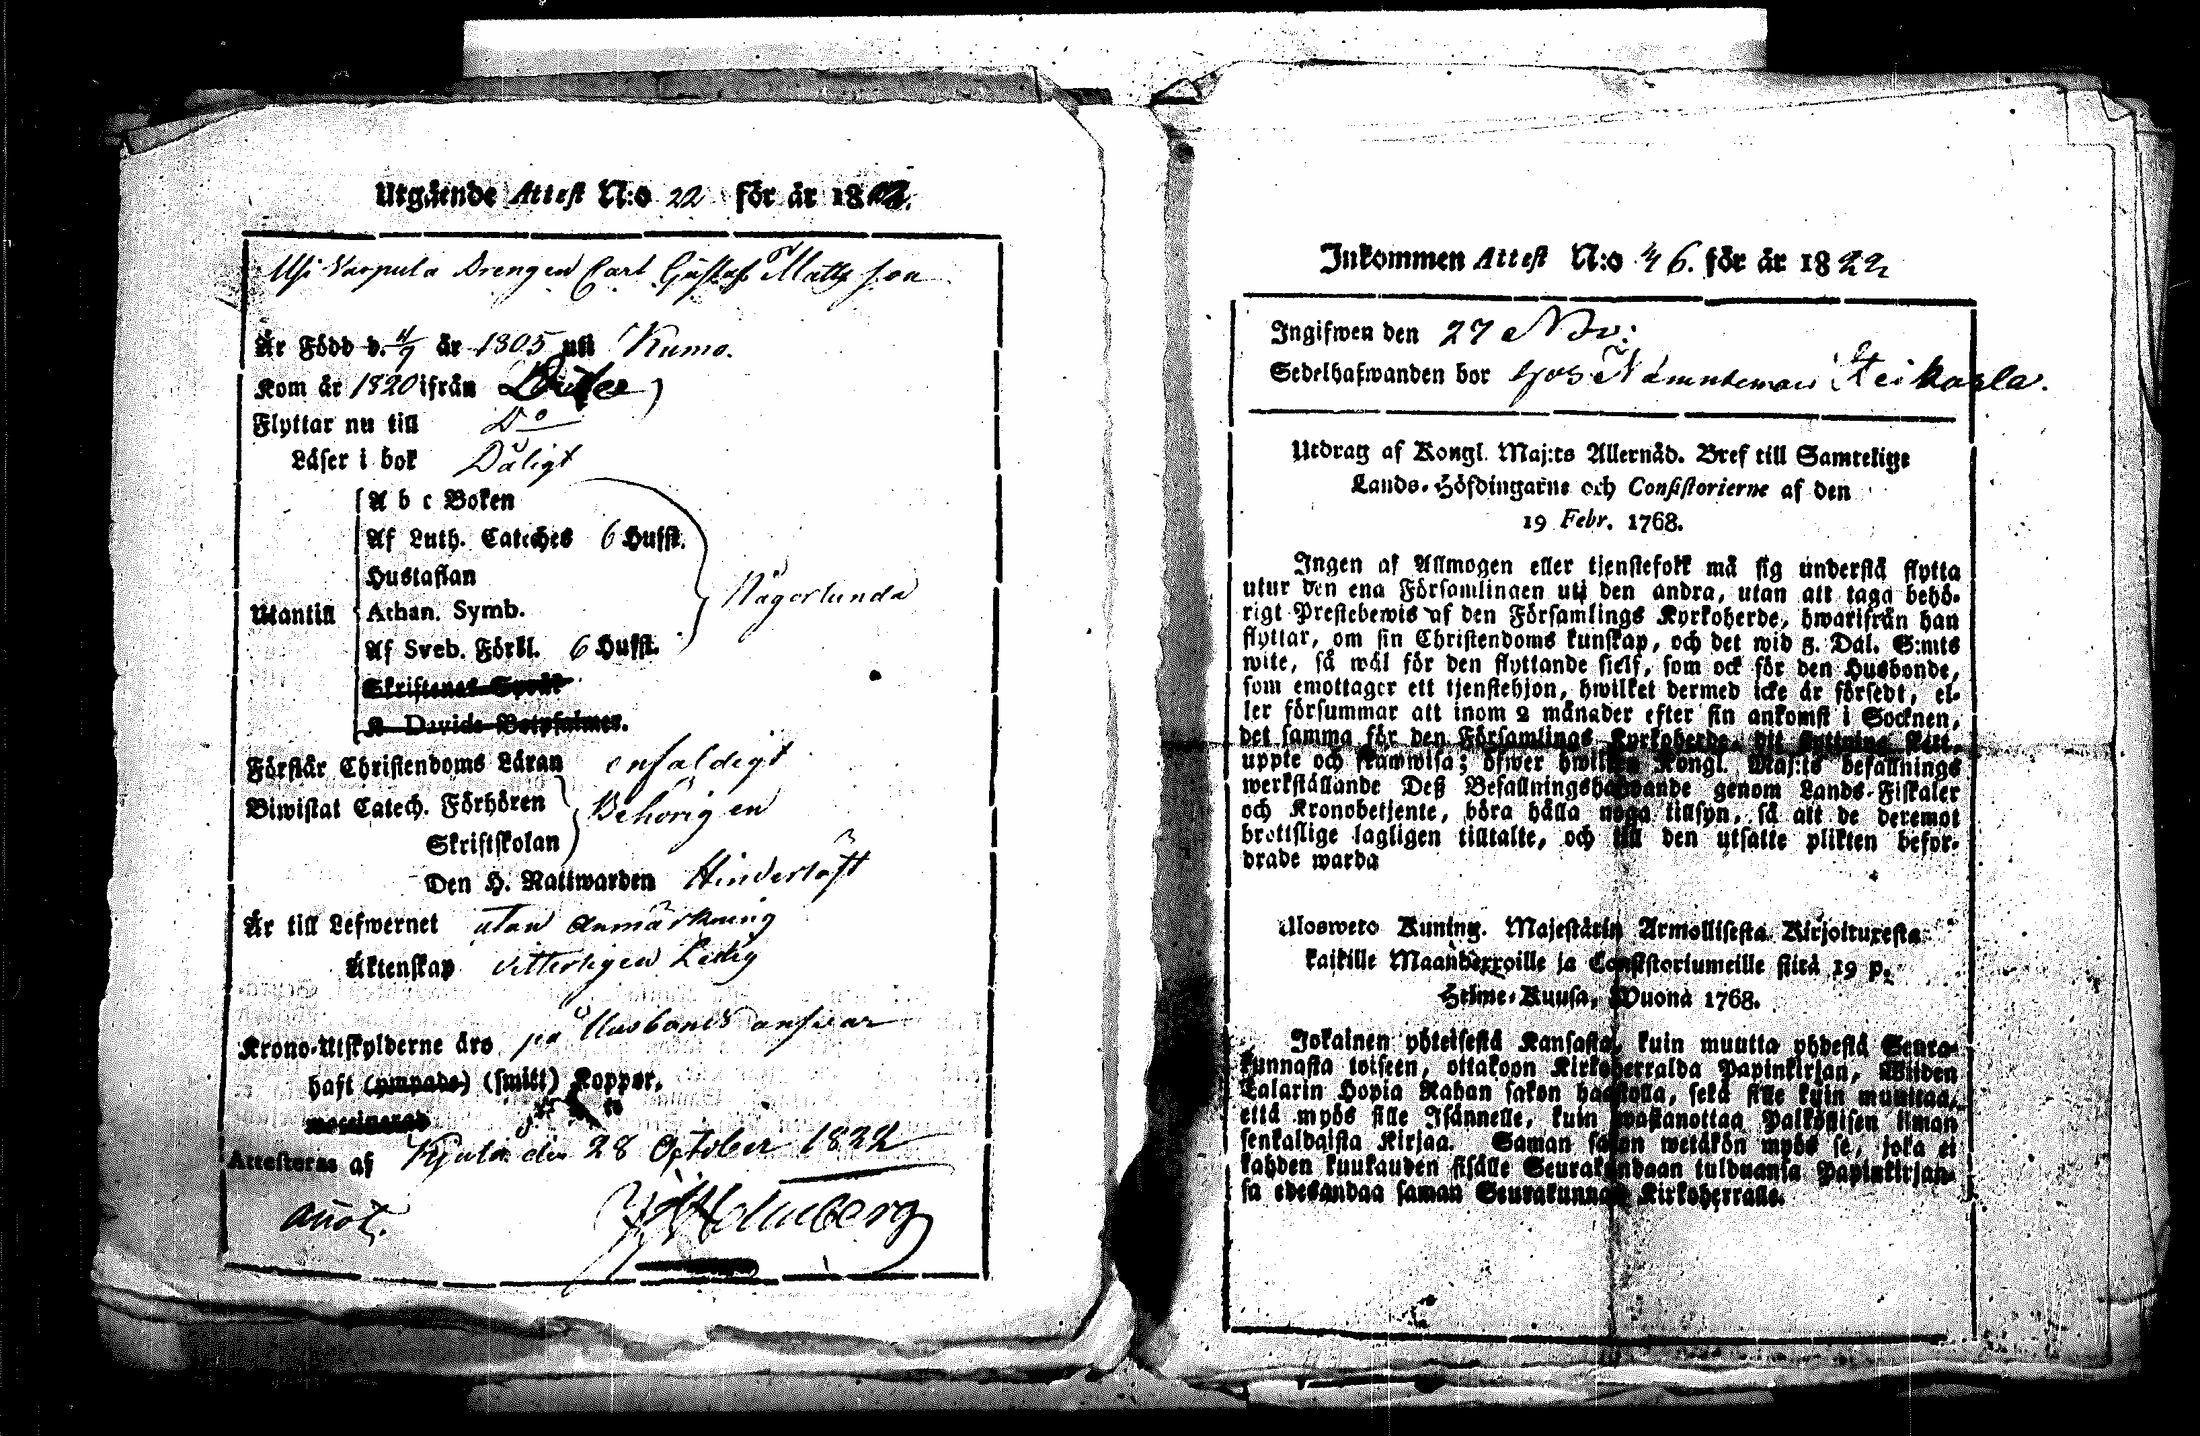 Utgående Attest N:o 22 för år 1822.
Usi Varpula Drengen Carl Gustaf Matts son
Är Född d. 11/9 år 1805 uti Kumo.
Kom år 1820 ifrån
Flyttar nu till Do
Läser i bok Dåligt
A b c Boken
Af Luth. Cateches 6 Hufst.
Hustaflan
Utantill Athan. Symb. Någorlunda
Af Sveb. Förkl. 6 Hufst.
Skriftenes Språk
K Davids Botpsalmer.
Förstår Christendoms Läran enfaldigt
Biwistat Catech. Förhören Behörigen
Skriftskolan
Den H. Nattwarden Hinderlöst
Är till Lefwernet utan anmärkning
Äktenskap vitterligen Ledig
Krono-Utskylderne äro på Husbonds answar
haft (ympade) (smitt) Koppor.
vaccinerad
Attesteras af Kjulo den 28 October 1822
Holmberg
Inkommen Attest N:o 46. för år 1822
Ingifwen den 27 Nov:
Sedelhafwanden bor hos Nämndeman Steikarla.
Utdrag af Kongl. Maj:ts Allernåd. Bref till Samtelige
Lands-Höfdingarne och Consistorierne af den
19 Febr. 1768.
Ingen af Allmogen eller tjenstefolk må sig understå flytta
utur den ena Församlingen uti den andra, utan att taga behö-
rigt Prestebewis af den Församlings Kyrkoherde, hwarifrån han
flyttar, om sin Christendoms kunskap, och det wid 5. Dal. S:mts
wite, så wäl för den flyttande sielf, som ock för den Husbonde,
som emottager ett tjenstehjon, hwilket dermed icke är försedt, el-
ler försummar att inom 2 månader efter sin ankomst i Socknen,
det samma för den Församlings Kyrkoherde, dit flyttning skett,
uppte och framwisa; öfwer hwilken Kongl. Maj:ts befallnings
werkställande Deß Befallningshafwande genom Lands-Fiskaler
och Kronobetjente, böra hålla noga tillsyn, så att de deremot
brottslige lagligen tilltalte, och till den utsatte plikten befor-
drade warda
Ulosweto Kuning. Majestätin Armollisesta Kirjoituxesta
kaikille Maanherroille ja Consistoriumeille siitä 19 p.
Helme-Kuusa, Wuonà 1768.
Jokainen yhteisestä Kansasta, kuin muutta yhdestä Seura-
kunnasta toiseen, ottakoon Kirkoherralda Papinkirjan, Wiiden
Talarin Hopia Rahan sakon haastolla, sekä sille kuin muuttaa,
että myös sille Isännelle, kuin wastanottaa Palkollisen ilman
senkaldaista Kirjaa. Saman sakon wetäkön myös se, joka ei
kahden kuukauden sisälle Seurakundaan tulduansa Papinkirjan-
sa edesandaa saman Seurakunnan Kirkoherralle.